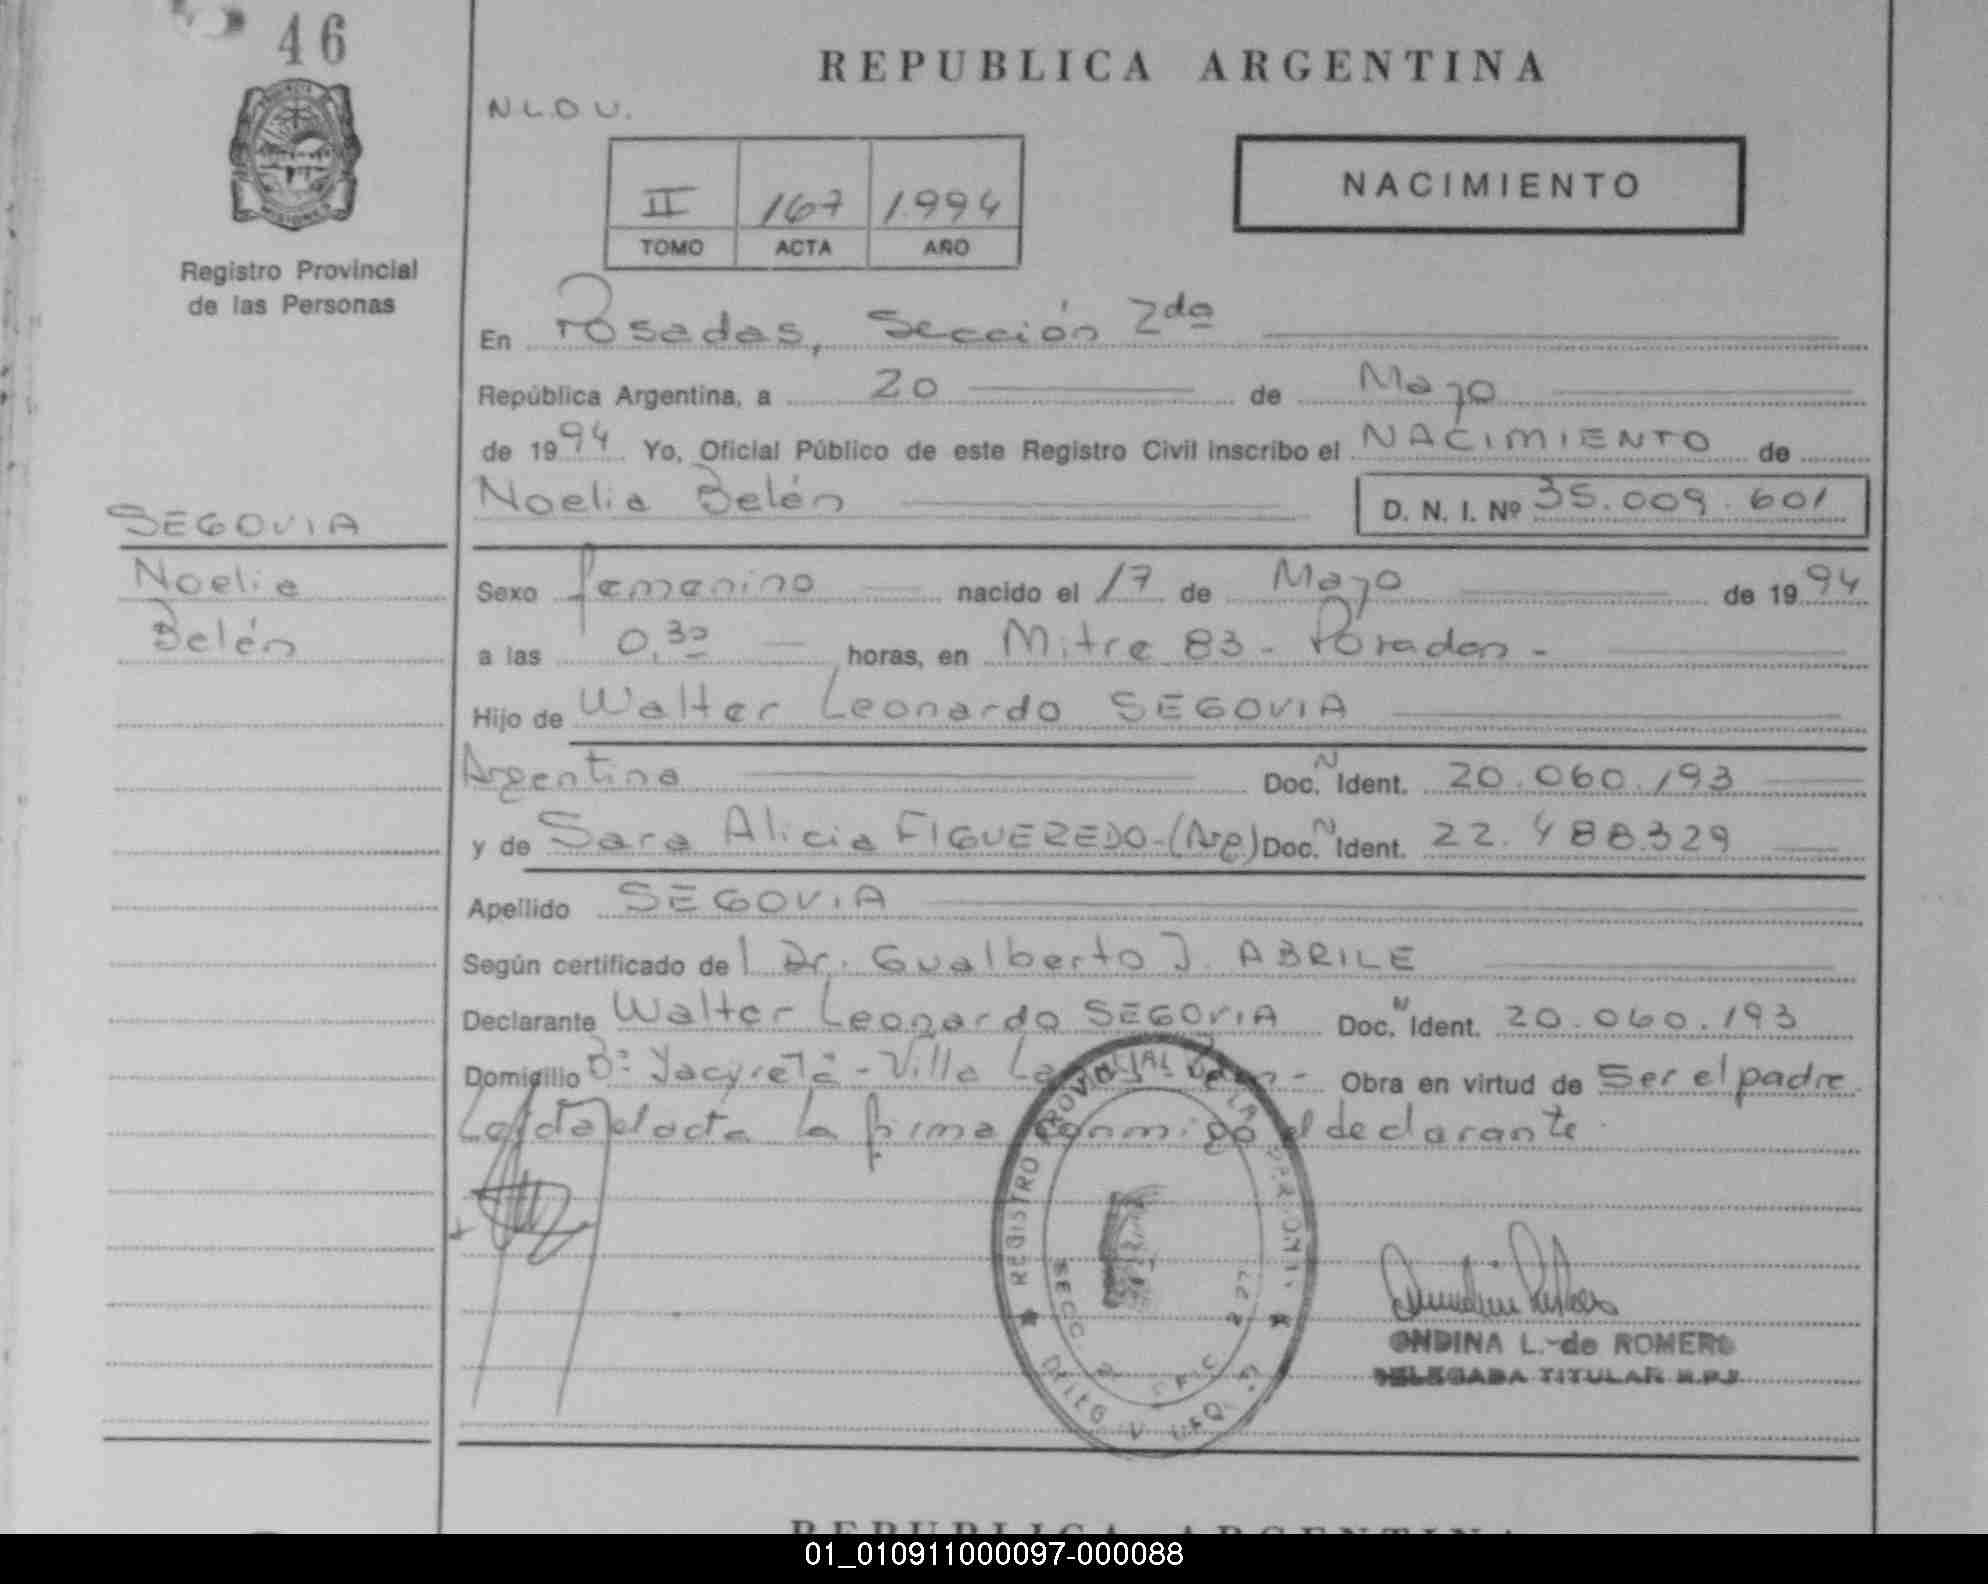 46
REPUBLICA ARGENTINA
N.L.O.U.
II 167 1994
TOMO ACTA AÑO
NACIMIENTO
Registro Provincial
de las Personas
En Posadas, Sección 2da
República Argentina, a 20 de Mayo
de 1994 Yo, Oficial Público de este Registro Civil inscribo el NACIMIENTO de
Noelia Belén D. N. I. Nº 35.009.601
SEGOVIA
Noelia
Belén
Sexo femenino nacido el 17 de Mayo de 1994
a las 0,30 horas, en Mitre 83 - Posadas -
Hijo de Walter Leonardo SEGOVIA
Argentina Doc. N Ident. 20.060.193
y de Sara Alicia FIGUEREDO-(Arg) Doc. N Ident. 22.488.329
Apellido SEGOVIA
Según certificado de Dr. Gualberto J. ABRILE
Declarante Walter Leonardo SEGOVIA Doc. N Ident. 20.060.193
Domicilio Bº Yacyretá - Villa Obra en virtud de Ser el padre
Leída el acta la firma conmigo el declarante.
REGISTRO PROVINCIAL DE LAS PERSONAS
SECC. 2
ONDINA L. de ROMERO
DELEGADA TITULAR R.P.P.
REPUBLICA ARGENTINA
01_010911000097-000088